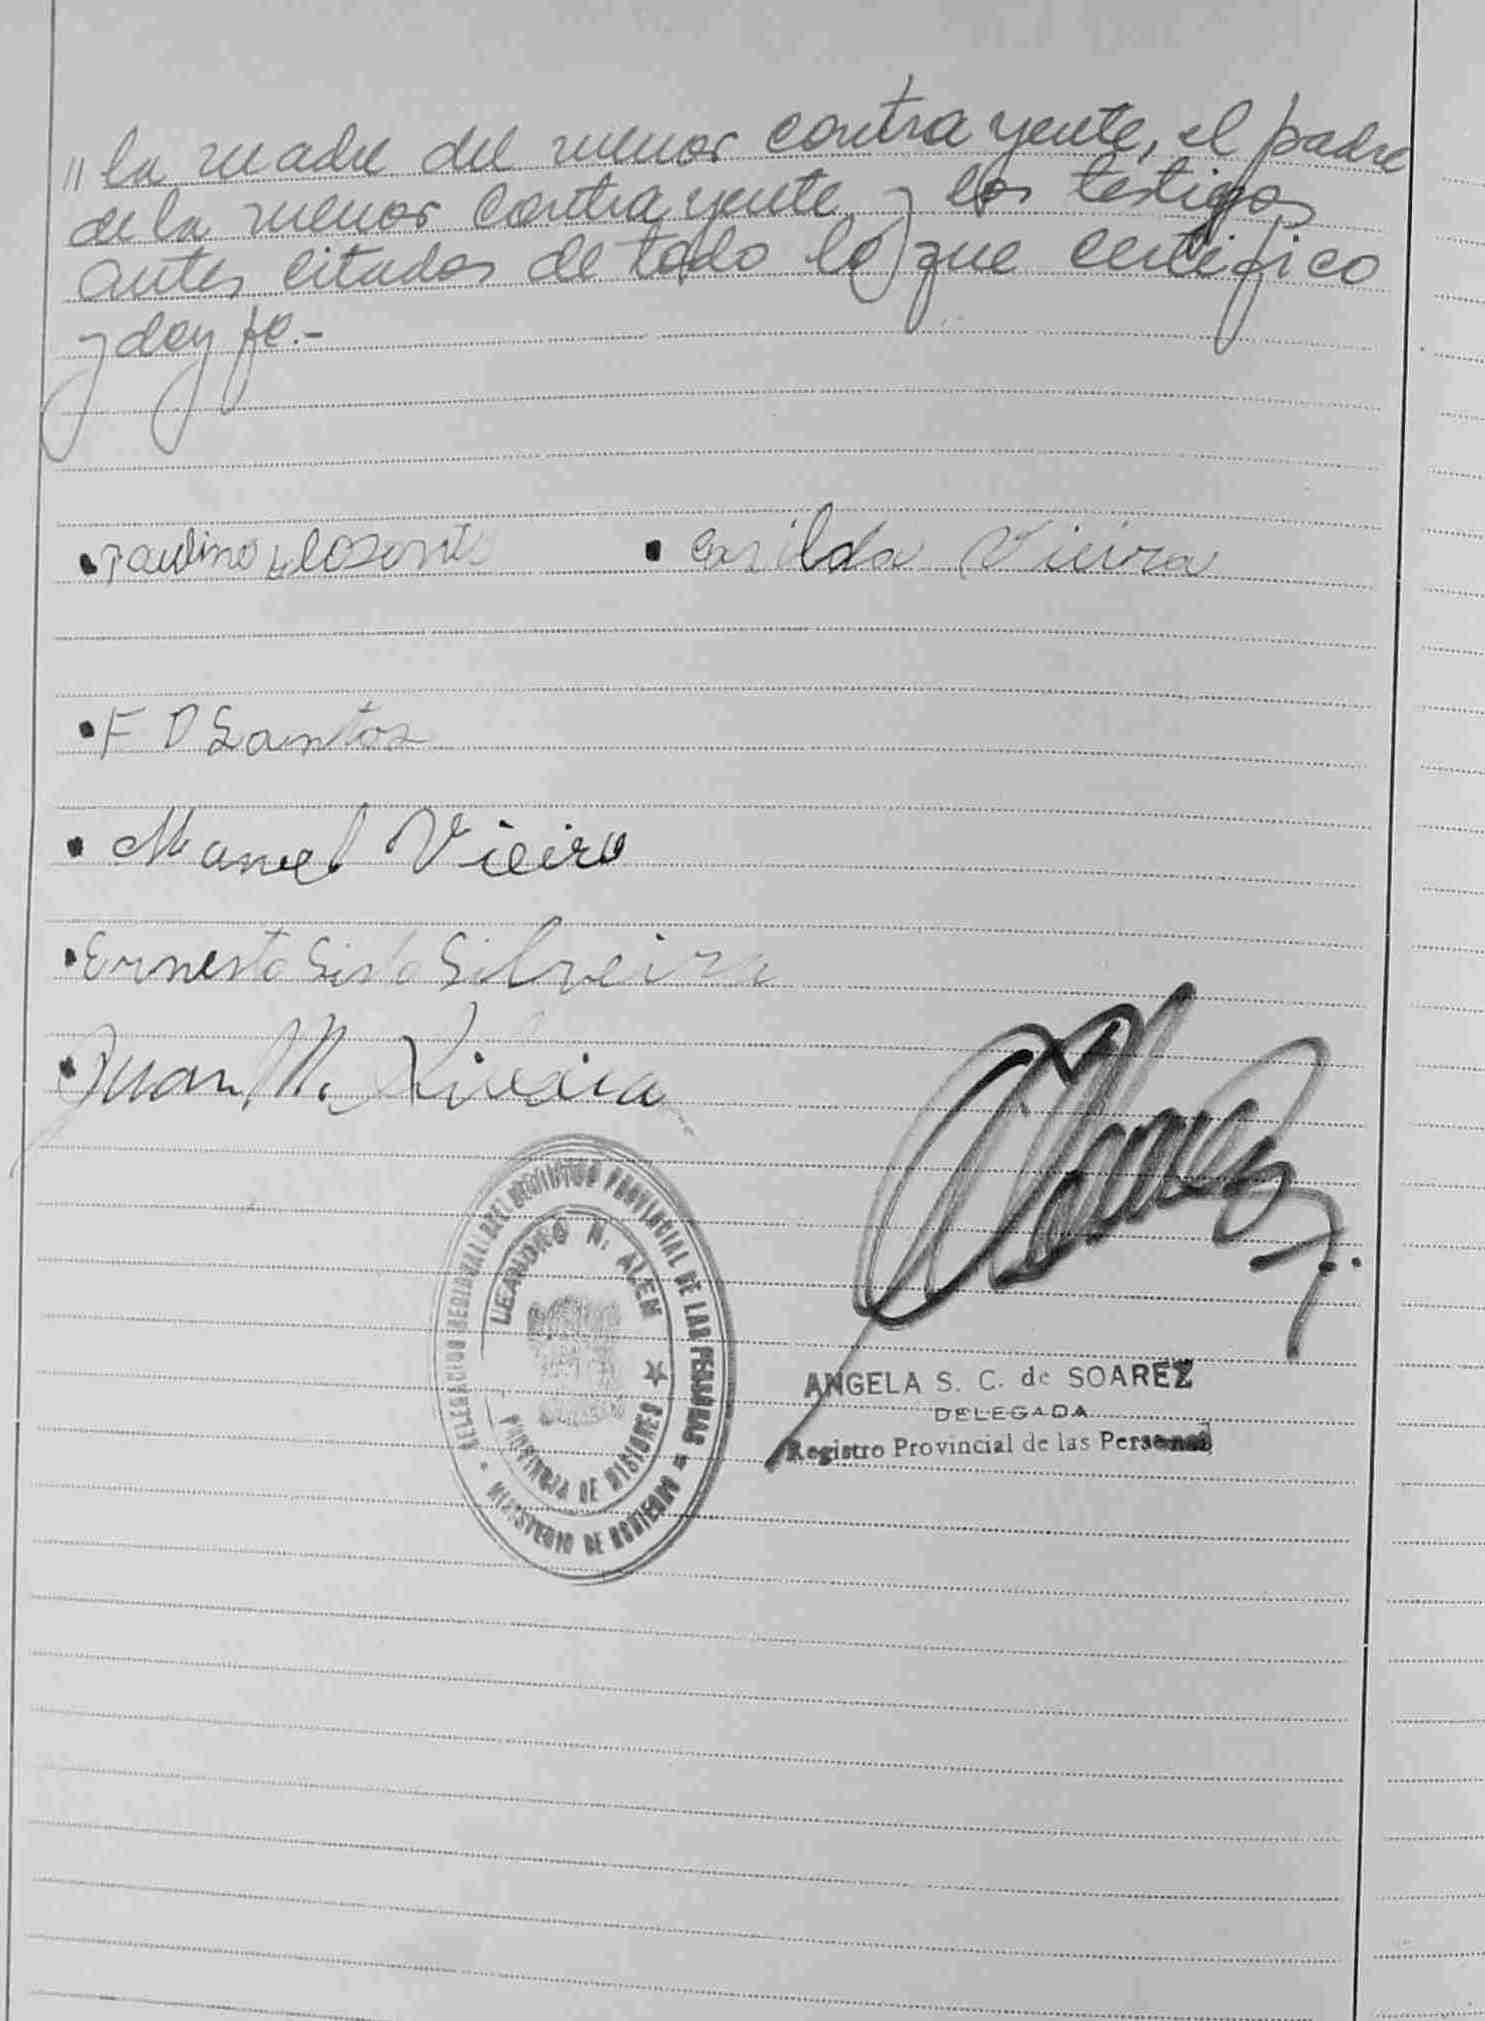 " la madre del menor contrayente, el padre
de la menor contrayente y los testigos
antes citados de todo lo que certifico
y doy fe.-
Paulino
Carilda Vieira
F D Santos
Manuel Vieira
Ernesto Sisto Silveira
Juan M. Silveira
DELEGACION REGIONAL DEL REGISTRO PROVINCIAL DE LAS PERSONAS
LEANDRO N. ALEM
PROVINCIA DE MISIONES
MINISTERIO DE GOBIERNO
ANGELA S. C. de SOAREZ
DELEGADA
Registro Provincial de las Personas